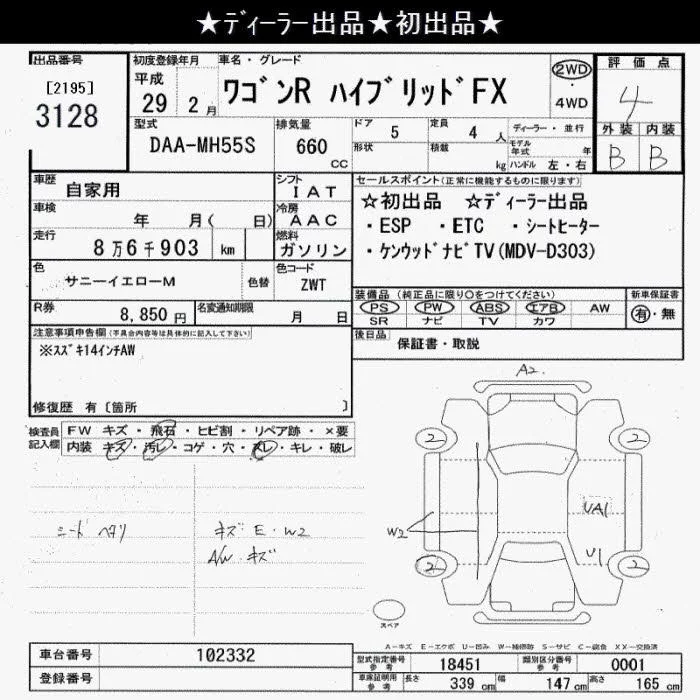 ★ディーラー出品★初出品★
出品番号
[2195]
3128
初度登録年月
平成
29 2月
車名・グレード
ワゴンR ハイブリッドFX
2WD
・
4WD
評価点
4
外装 内装
B B
型式
DAA-MH55S
排気量
660
CC
ドア 5
形状
定員 4 人
積載 kg
ディーラー・並行
モデル年式 年
ハンドル 左・右
車歴
自家用
シフト
IAT
車検
年 月( 日)
冷房
AAC
走行
8万6千903 km
燃料
ガソリン
色
サニーイエローM
色替
色コード
ZWT
R券
8,850 円
名変通知期限
月 日
セールスポイント(正常に機能するものに限ります)
☆初出品 ☆ディーラー出品
・ESP ・ETC ・シートヒーター
・ケンウッドナビTV(MDV-D303)
装備品 (純正品に限り○をつけてください)
PS PW ABS エアB AW
SR ナビ TV カワ
新車保証書
有・無
後日品
保証書・取説
注意事項申告欄(不具合内容等は具体的に記入して下さい)
※スズキ14インチAW
修復歴 有〔箇所 〕
検査員記入欄
FW キズ・飛石・ヒビ割・リペア跡・×要
内装 キズ・汚レ・コゲ・穴・スレ・キレ・破レ
シート ヘタリ
キズ E・W2
A/W キズ
A2.
2 2
W2
UA1
U1
2 2
スペア
A-キズ E-エクボ U-凹み W-補修跡 S-サビ C-腐食 XX-交換済
車台番号 102332
登録番号
型式指定番号
参考
18451
類別区分番号
参考
0001
車庫証明用
参考
長さ 339 cm 幅 147 cm 高さ 165 cm